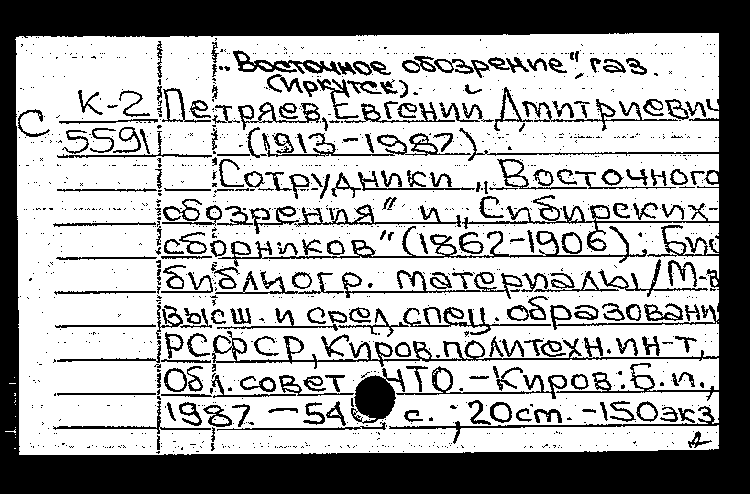 „Восточное обозрение", газ.
(Иркутск).
С К-2 Петряев, Евгений Дмитриевич
5591 (1913-1987).
Сотрудники „Восточного
обозрения" и „Сибирских
сборников" (1862-1906): Био
библиогр. материалы / М-в
высш. и сред. спец. образовани
РСФСР, Киров. политехн. ин-т,
Обл. совет НТО. - Киров: Б. и.,
1987. - 54 с. ; 20 ст. - 150 экз